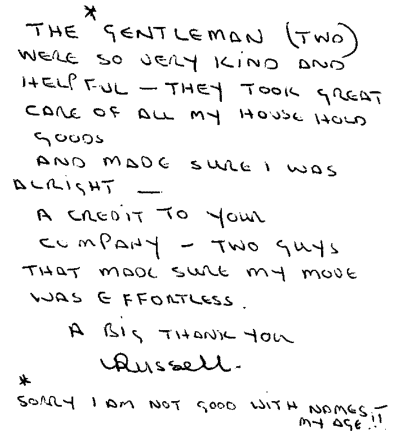 *
THE GENTLEMAN (TWO)
WERE SO VERY KIND AND
HELPFUL — THEY TOOK GREAT
CARE OF ALL MY HOUSE HOLD
GOODS
AND MADE SURE I WAS
ALRIGHT —
A CREDIT TO YOUR
COMPANY - TWO GUYS
THAT MADE SURE MY MOVE
WAS EFFORTLESS.
A BIG THANK YOU
Russell.
*
SORRY I AM NOT GOOD WITH NAMES -
MY AGE!!